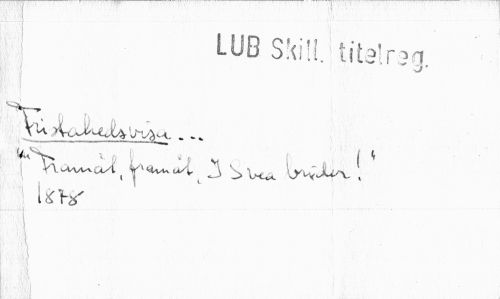 LUB Skill. titelreg.
Fristahedsvisa...
"Framåt, framåt, I Svea bröder!"
1878